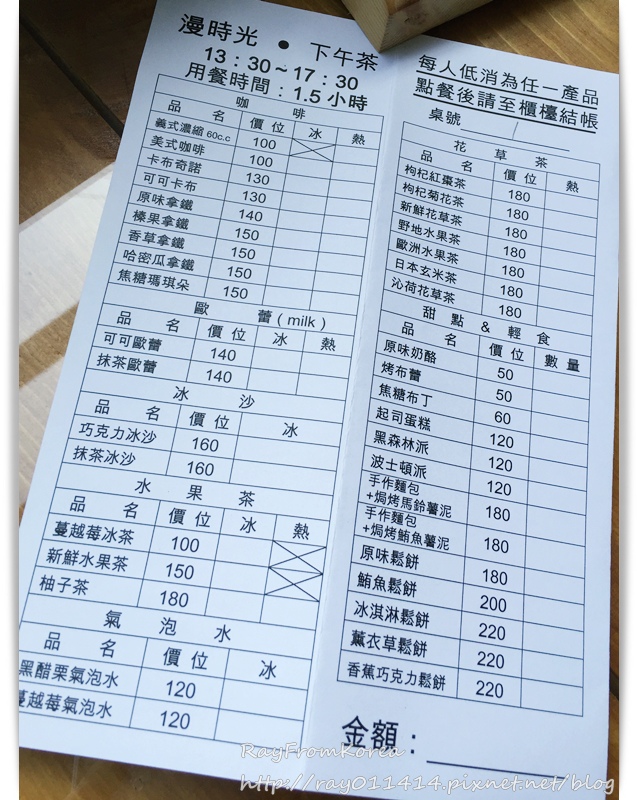 漫時光 ● 下午茶
13：30~17：30
用餐時間：1.5 小時
咖 啡
品 名 價 位 冰 熱
義式濃縮 60c.c 100
美式咖啡 100
卡布奇諾 130
可可卡布 130
原味拿鐵 140
榛果拿鐵 150
香草拿鐵 150
哈密瓜拿鐵 150
焦糖瑪琪朵 150
歐 蕾(milk)
品 名 價 位 冰 熱
可可歐蕾 140
抹茶歐蕾 140
冰 沙
品 名 價 位 冰
巧克力冰沙 160
抹茶冰沙 160
水 果 茶
品 名 價 位 冰 熱
蔓越莓冰茶 100
新鮮水果茶 150
柚子茶 180
氣 泡 水
品 名 價 位 冰
黑醋栗氣泡水 120
蔓越莓氣泡水 120
每人低消為任一產品
點餐後請至櫃檯結帳
桌號 ____/____
花 草 茶
品 名 價 位 熱
枸杞紅棗茶 180
枸杞菊花茶 180
新鮮花草茶 180
野地水果茶 180
歐洲水果茶 180
日本玄米茶 180
沁荷花草茶 180
甜 點 & 輕 食
品 名 價 位 數 量
原味奶酪 50
烤布蕾 50
焦糖布丁 60
起司蛋糕 120
黑森林派 120
波士頓派 120
手作麵包
+焗烤馬鈴薯泥 180
手作麵包
+焗烤鮪魚薯泥 180
原味鬆餅 180
鮪魚鬆餅 200
冰淇淋鬆餅 220
薰衣草鬆餅 220
香蕉巧克力鬆餅 220
金額：________
RayFromKorea
http://ray011414.pixnet.net/blog